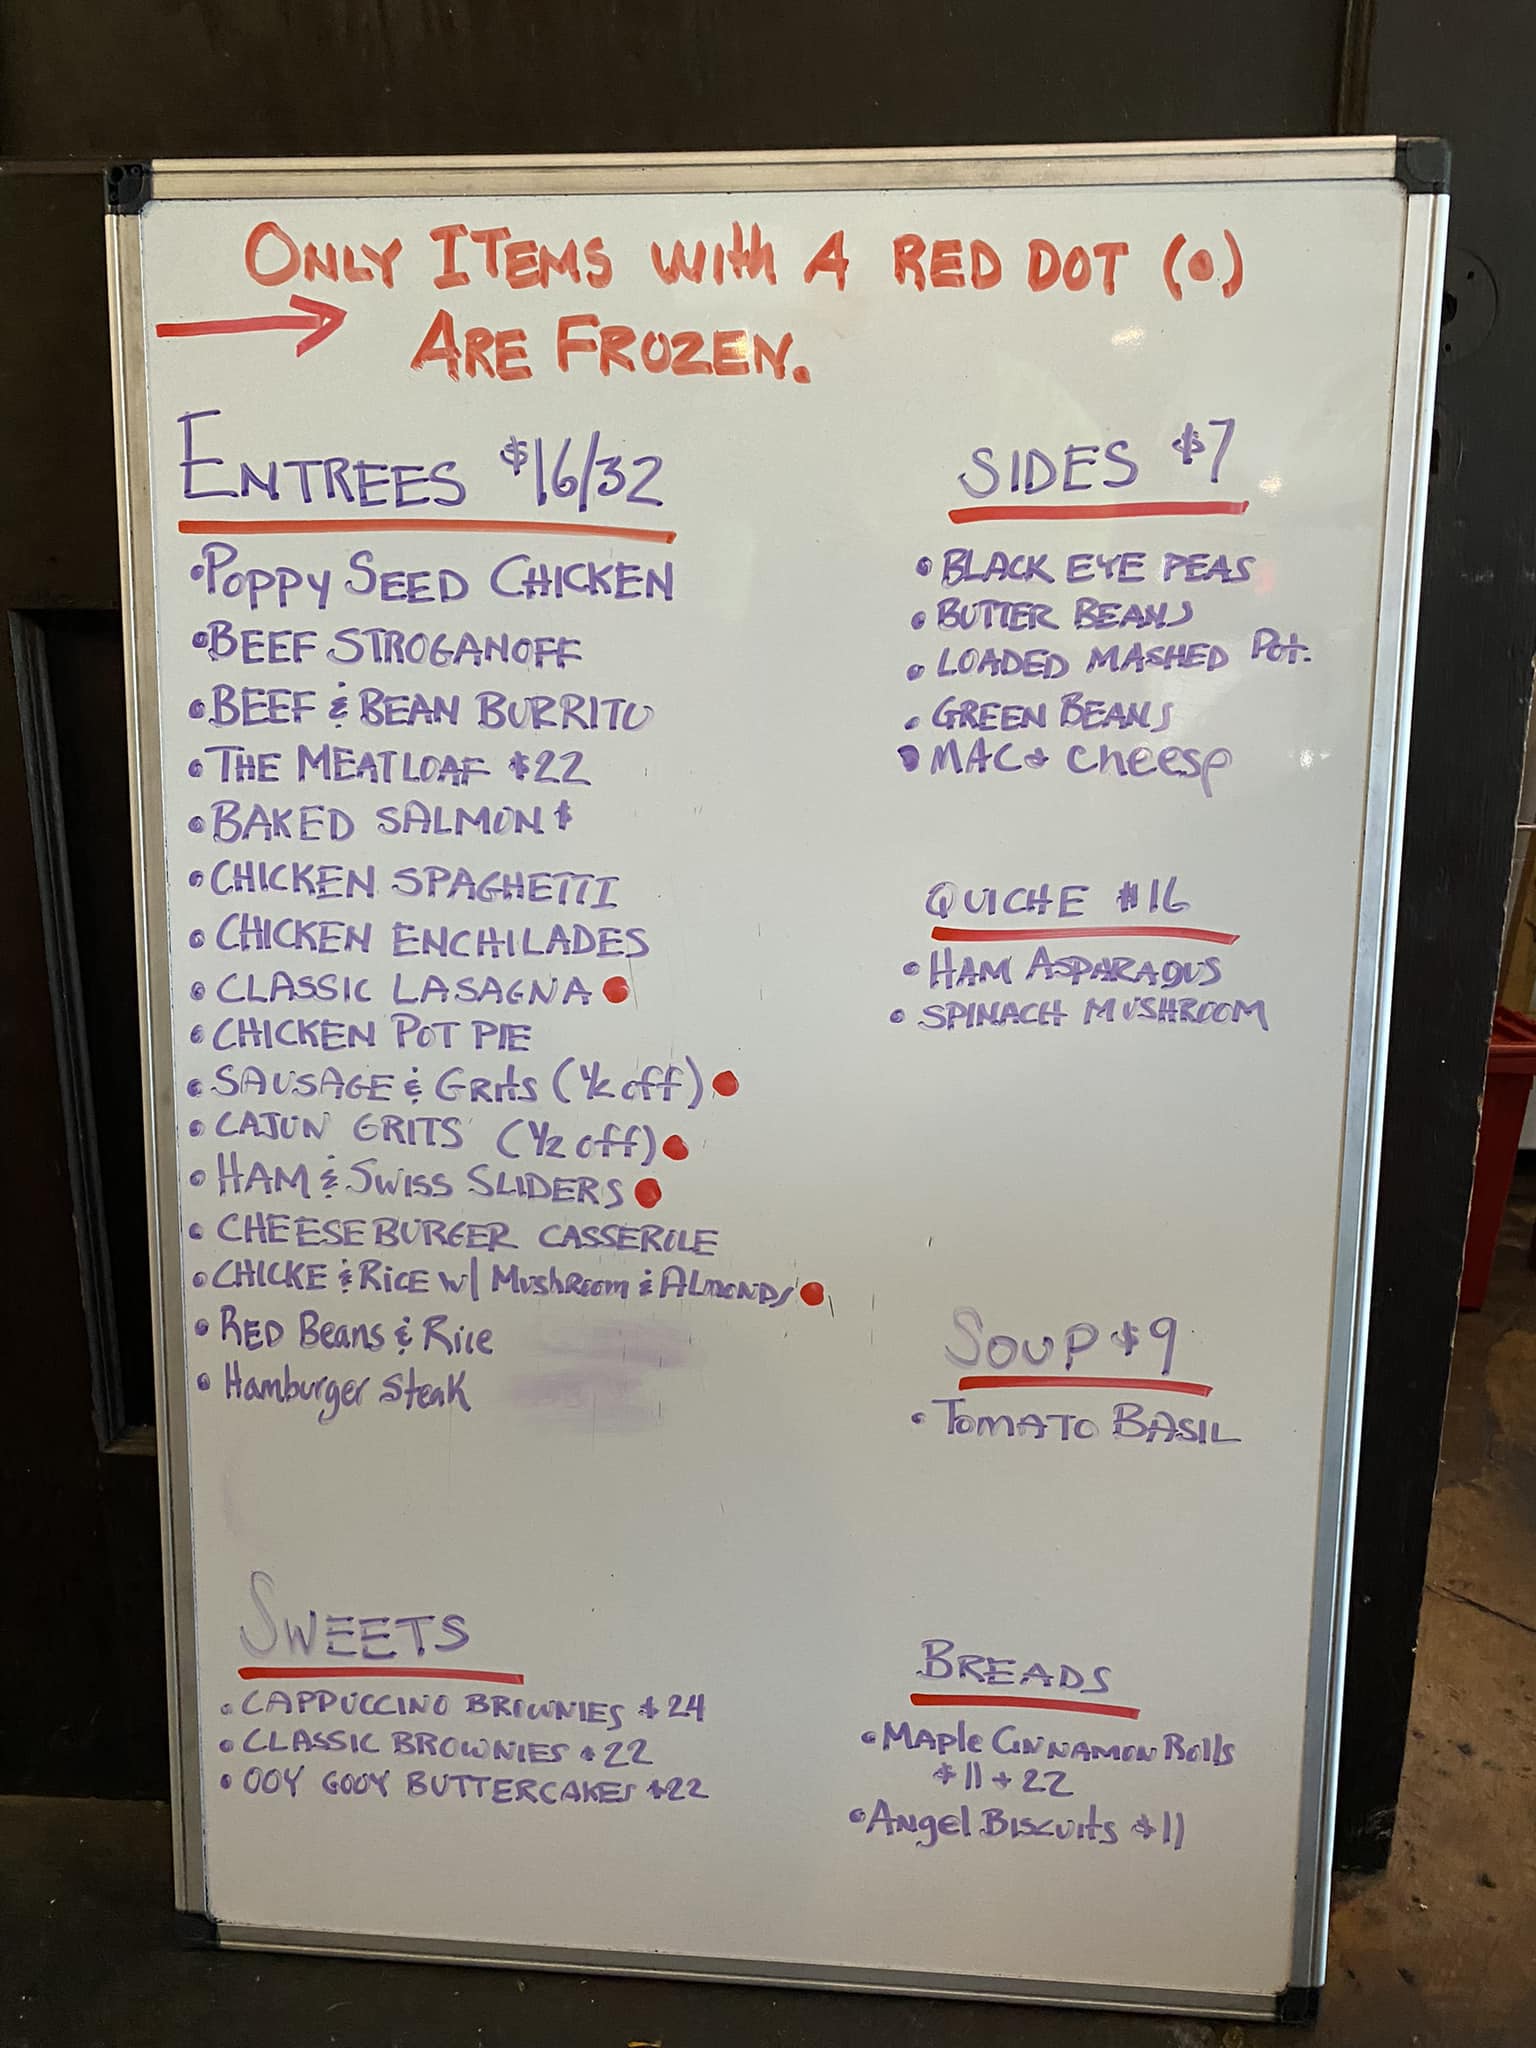 ONLY ITEMS WITH A RED DOT (•)
ARE FROZEN.
ENTREES $16/32
• POPPY SEED CHICKEN
• BEEF STROGANOFF
• BEEF & BEAN BURRITO
• THE MEATLOAF $22
• BAKED SALMON $
• CHICKEN SPAGHETTI
• CHICKEN ENCHILADES
• CLASSIC LASAGNA
• CHICKEN POT PIE
• SAUSAGE & Grits (1/2 off)
• CAJUN GRITS (1/2 off)
• HAM & SWISS SLIDERS
• CHEESEBURGER CASSEROLE
• CHICKE & RICE w/ Mushroom & ALMONDS
• RED Beans & Rice
• Hamburger Steak
SIDES $7
• BLACK EYE PEAS
• BUTTER BEANS
• LOADED MASHED Pot.
• GREEN BEANS
• MAC & Cheese
QUICHE $16
• HAM ASPARAGUS
• SPINACH MUSHROOM
SOUP $9
• TOMATO BASIL
SWEETS
• CAPPUCCINO BROWNIES $24
• CLASSIC BROWNIES $22
• OOY GOOY BUTTERCAKES $22
BREADS
• Maple Cinnamon Rolls
$11 + 22
• Angel Biscuits $11